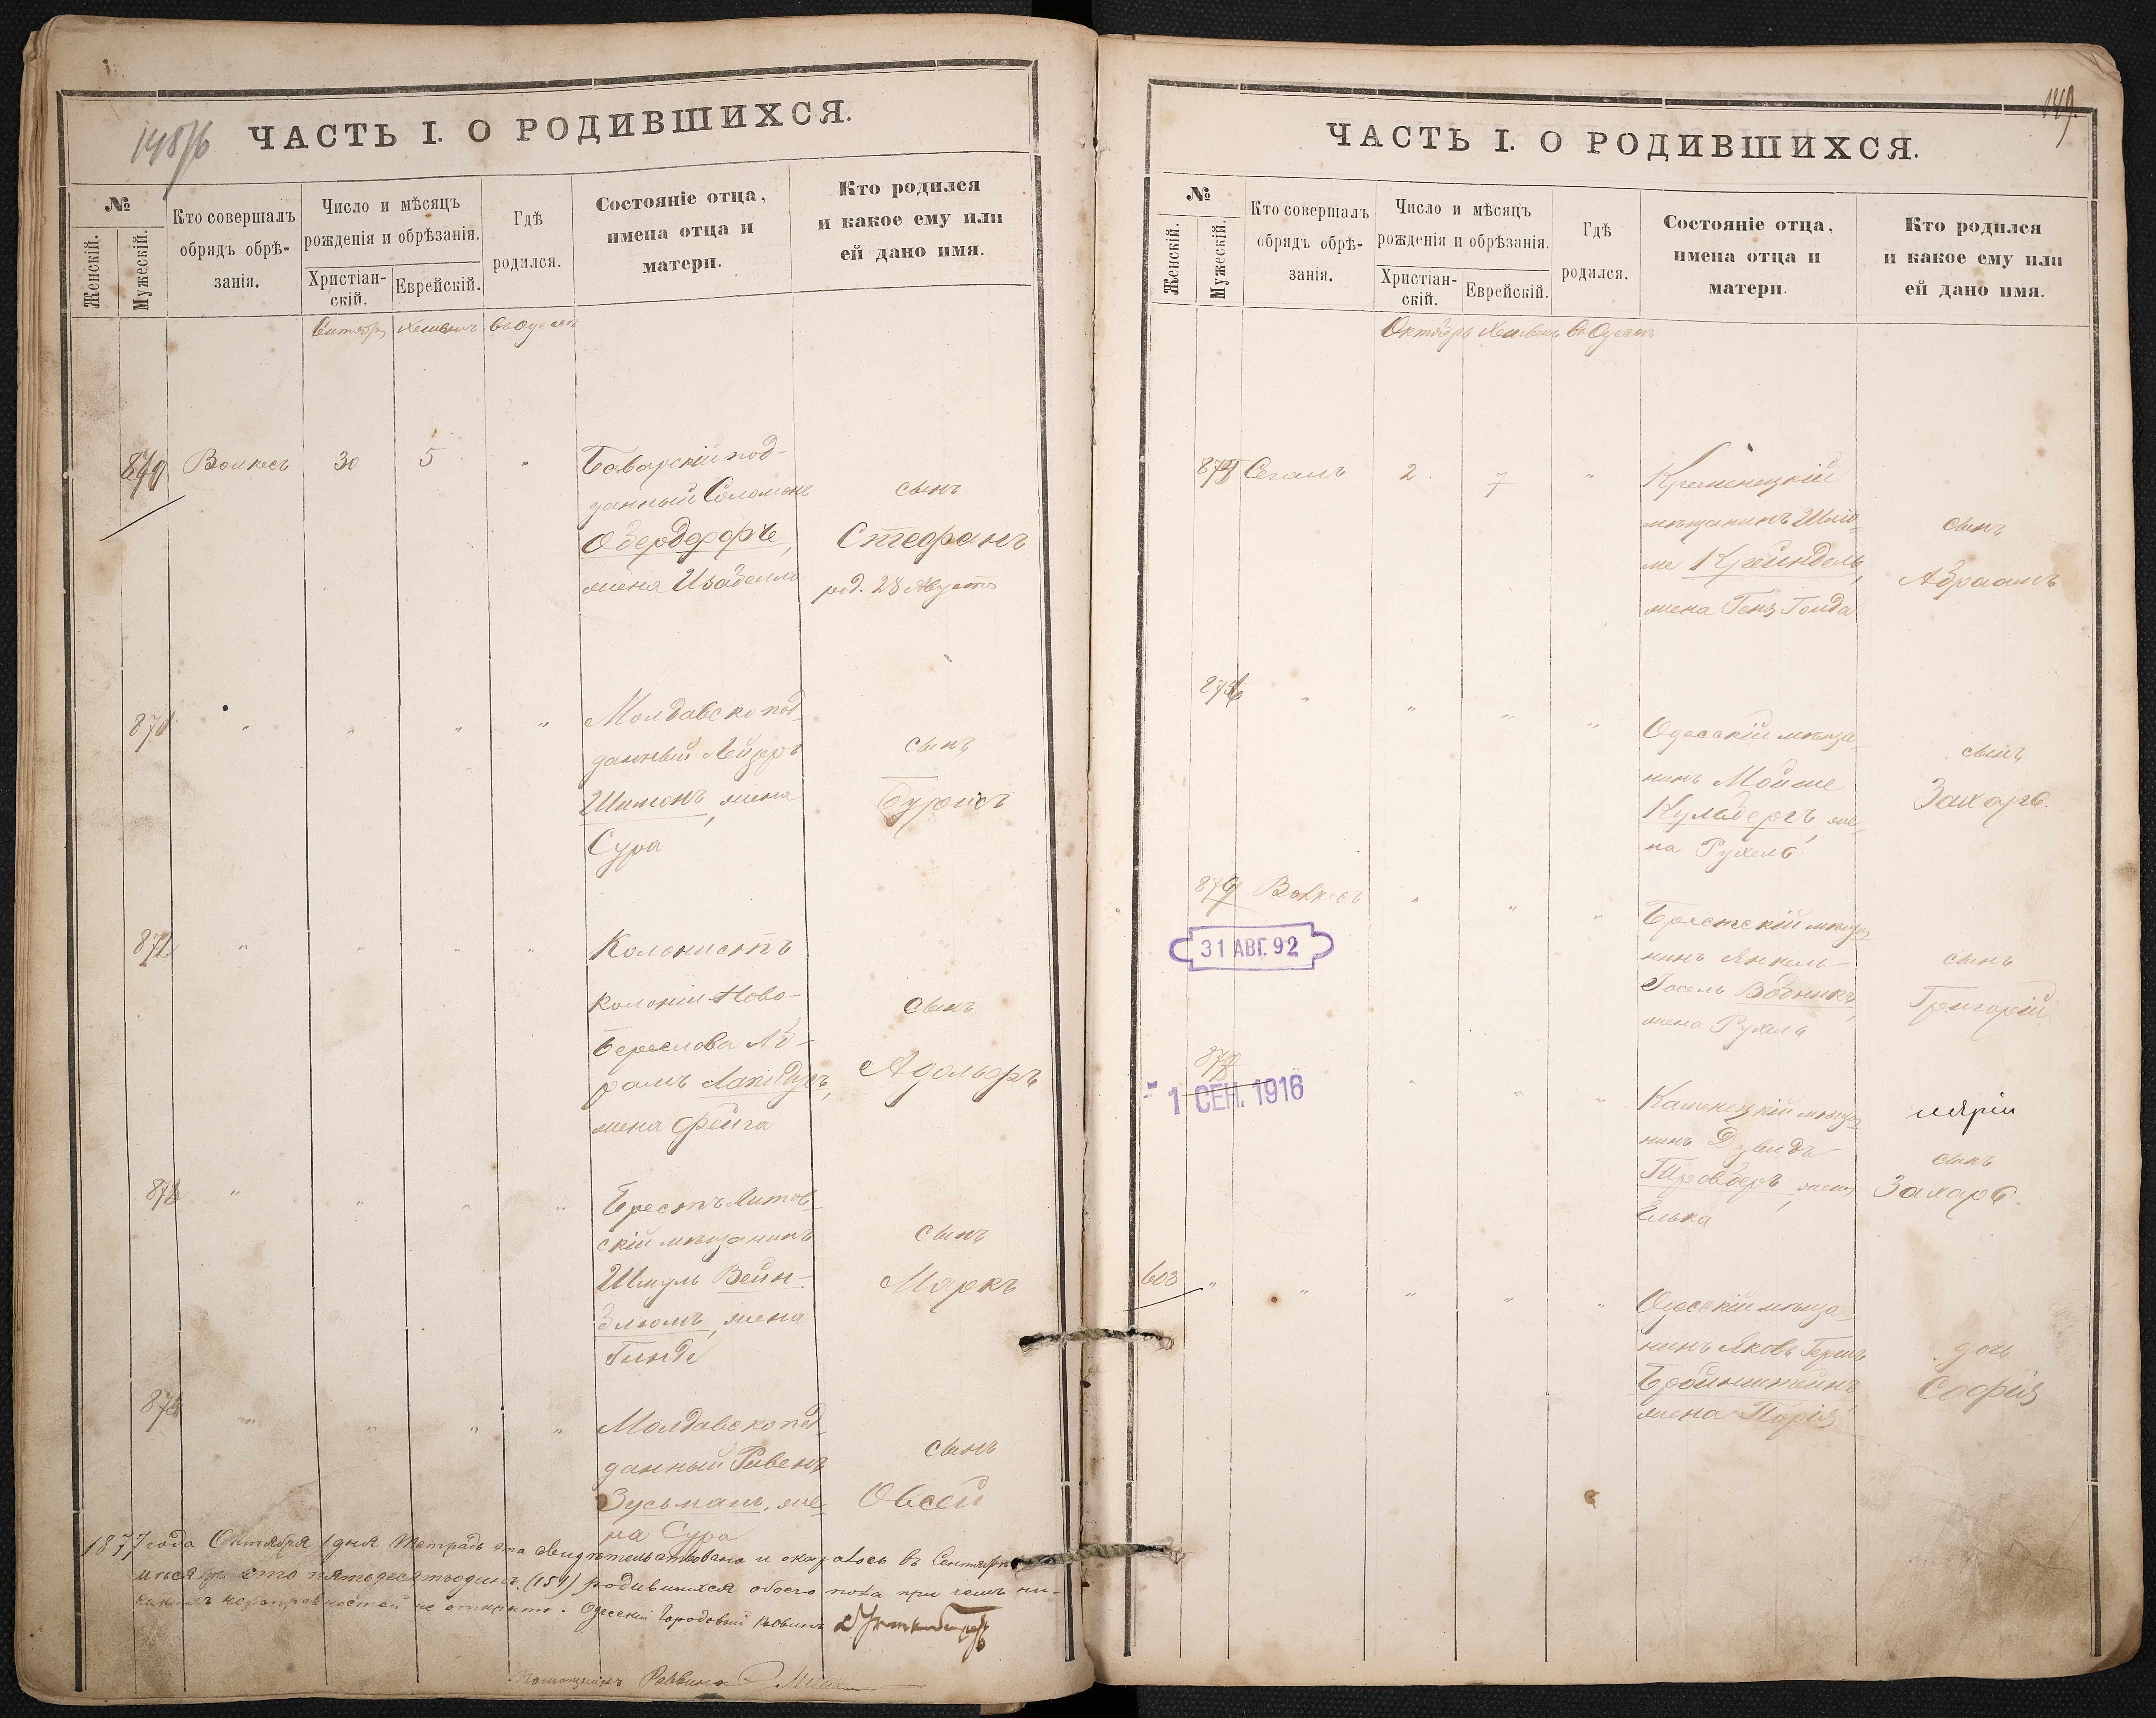 ЧАСТЬ I. О РОДИВШИХСЯ.
№
Женскій.
Мужескій.
Кто совершалъ
обрядъ обрѣ-
занія.
Число и мѣсяцъ
рожденія и обрѣзанія.
Христіан-
скій.
Еврейскій.
Гдѣ
родился.
Состояніе отца,
имена отца и
матери.
Кто родился
и какое ему или
ей дано имя.
въ Одессѣ
30
5
Баварскій под-
данный Соломонъ
жена Изабелла
сынъ
Стефанъ
род. 28 Августа
Молдавско под-
данный Лейзеръ
Шимонъ, жена
Сура
сынъ
871
Колонистъ
колоніи Ново-
Береслова Аб-
рамъ Лапидусъ,
жена Фейга
сынъ
Адольфъ
Брестъ Литов-
скій мѣщанинъ
Шмуль Вейн-
блюмъ, жена
Гинде
сынъ
Маркъ
Молдавско под-
данный Рувенъ
Зусьманъ, же-
на Сура
сынъ
Овсей
1877 года Октября 1 дня Тетрадь эта свидѣтельствована и оказалось въ Сентябрѣ
сто пятьдесятъ одинъ (151) родившихся обоего пола при чемъ ни-
какихъ неисправностей не открыто. Одесскій Городовый Раввинъ
Помощникъ Раввина
149.
ЧАСТЬ I. О РОДИВШИХСЯ.
№
Женскій.
Мужескій.
Кто совершалъ
обрядъ обрѣ-
занія.
Число и мѣсяцъ
рожденія и обрѣзанія.
Христіан-
скій.
Еврейскій.
Гдѣ
родился.
Состояніе отца,
имена отца и
матери.
Кто родился
и какое ему или
ей дано имя.
Октябрь Хешванъ Въ Одессѣ
Сегаль
2.
7
Кременецкій
мѣщанинъ Шлио-
ме Крейндель,
жена Геня Голда
сынъ
Абраамъ
Одесскій мѣща-
нинъ Мойше
Кульбергъ, же-
на Рухель
сынъ
Захаръ.
31 АВГ. 92
Брестскій мѣща-
нинъ Янкель
Іосель Водникъ,
жена Рухель
сынъ
Григорій
1 СЕН. 1916
Каменецкій мѣща-
нинъ Дувидъ
жена
Елька
сынъ
Захаръ.
603
Одесскій мѣща-
нинъ Яковъ Гершъ
Бройнштейнъ,
жена Перія
дочь
Софія